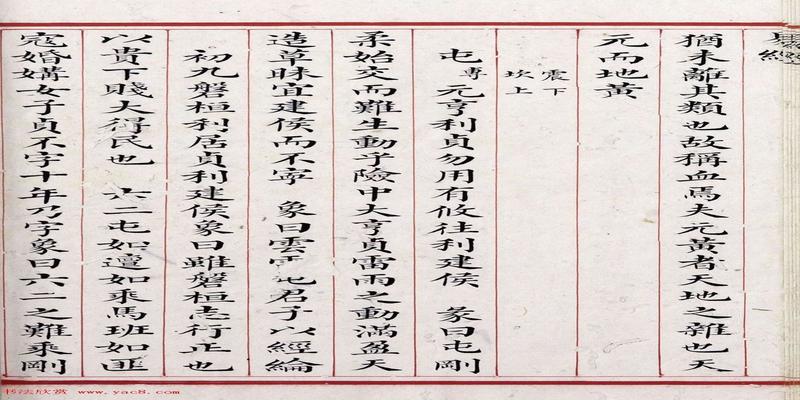 易經
猶未離其類也故稱血焉夫元黃者天地之雜也天
元而地黃
震下
坎上
屯 專 元亨利貞勿用有攸往利建侯 彖曰屯剛
柔始交而難生動乎險中大亨貞雷雨之動滿盈天
造草昧宜建侯而不寧 象曰雲雷屯君子以經綸
初九磐桓利居貞利建侯象曰雖磐桓志行正也
以貴下賤大得民也 六二屯如邅如乘馬班如匪
寇婚媾女子貞不字十年乃字象曰六二之難乘剛
书法欣赏 www.yac8.com